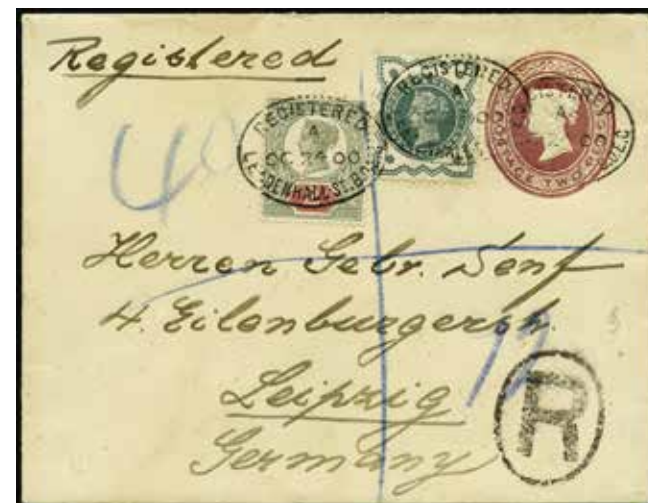 Registered
REGISTERED
A
OC 24 00
LEADENHALL ST. B.O.
REGISTERED
A
POSTAGE TWO
Herren Gebr. Senf
4. Eilenburgerstr.
Leipzig
Germany
12
R